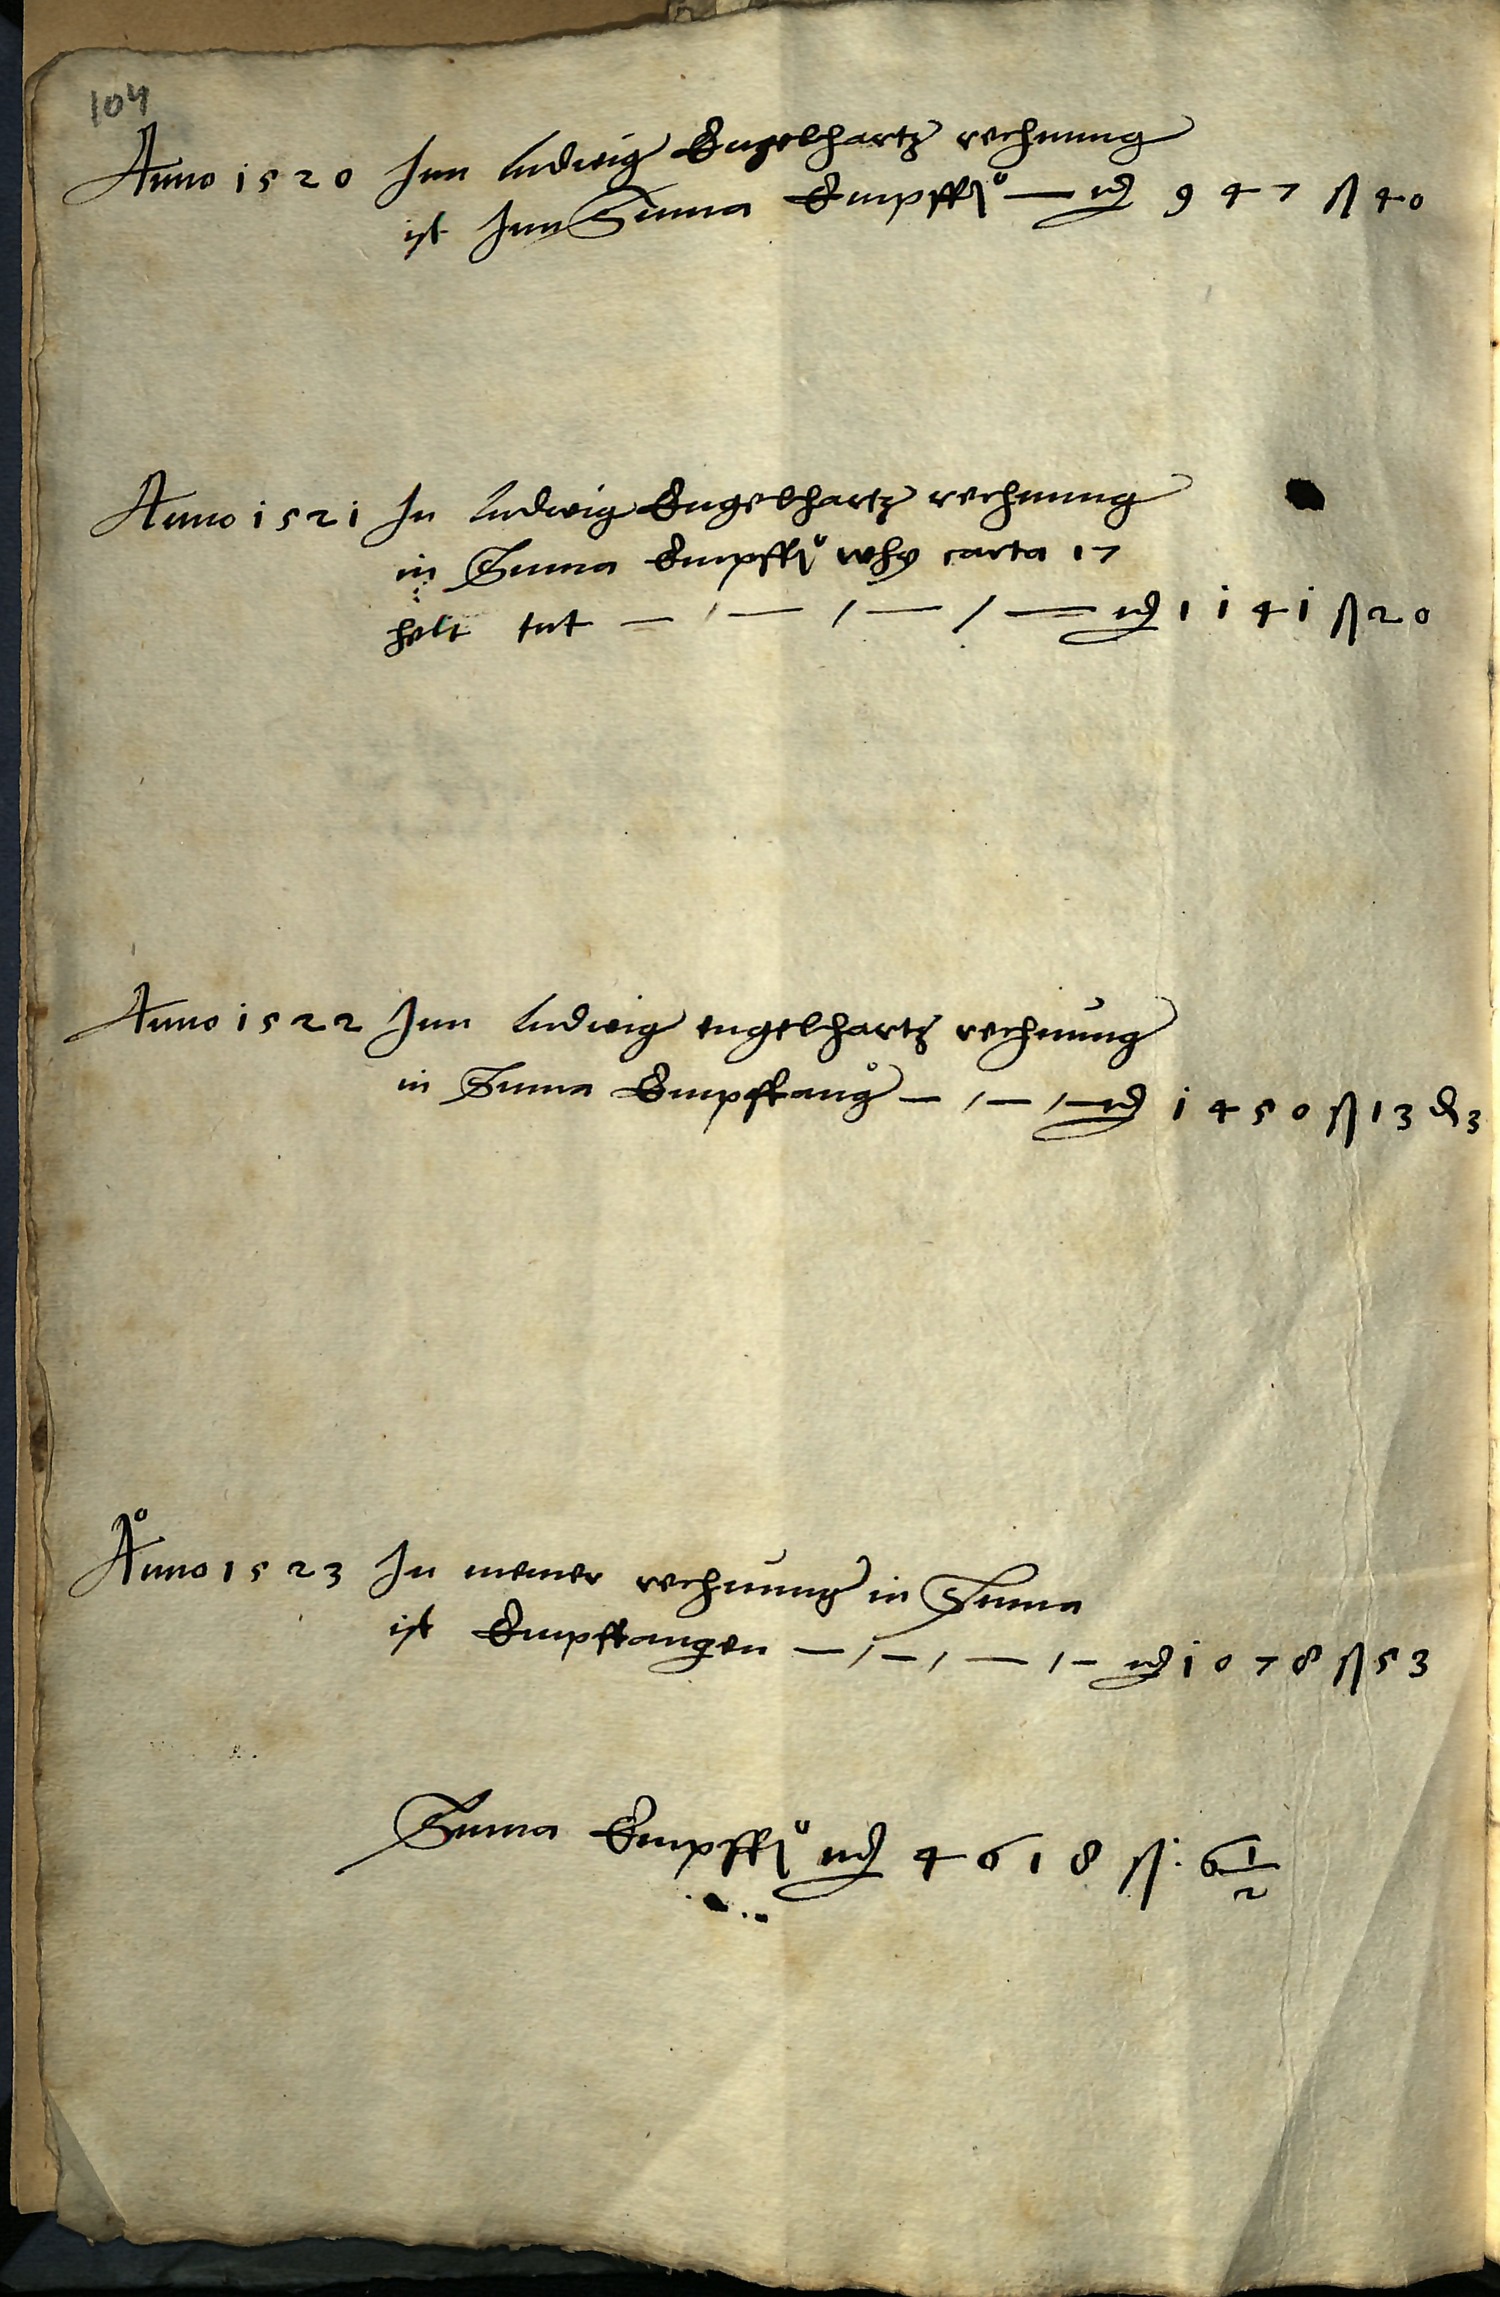 104
Anno 1520 Inn ludwig Engelhartz rechnung
ist Inn Suma Empff° — 947 ß 40
Anno 1521 In ludwig Engelhartz rechnung
in Suma Empff° carta 17
helt tut — / — / — / — 1141 ß 20
Anno 1522 Inn ludwig engelhartz rechnung
in Suma Empfang — / — / — 1450 ß 13 ₰ 3
Anno 1523 In meiner rechnung in Suma
ist Empfangen — / — / — / — 1078 ß 53
Suma Empff° 4618 ß 6 1/2